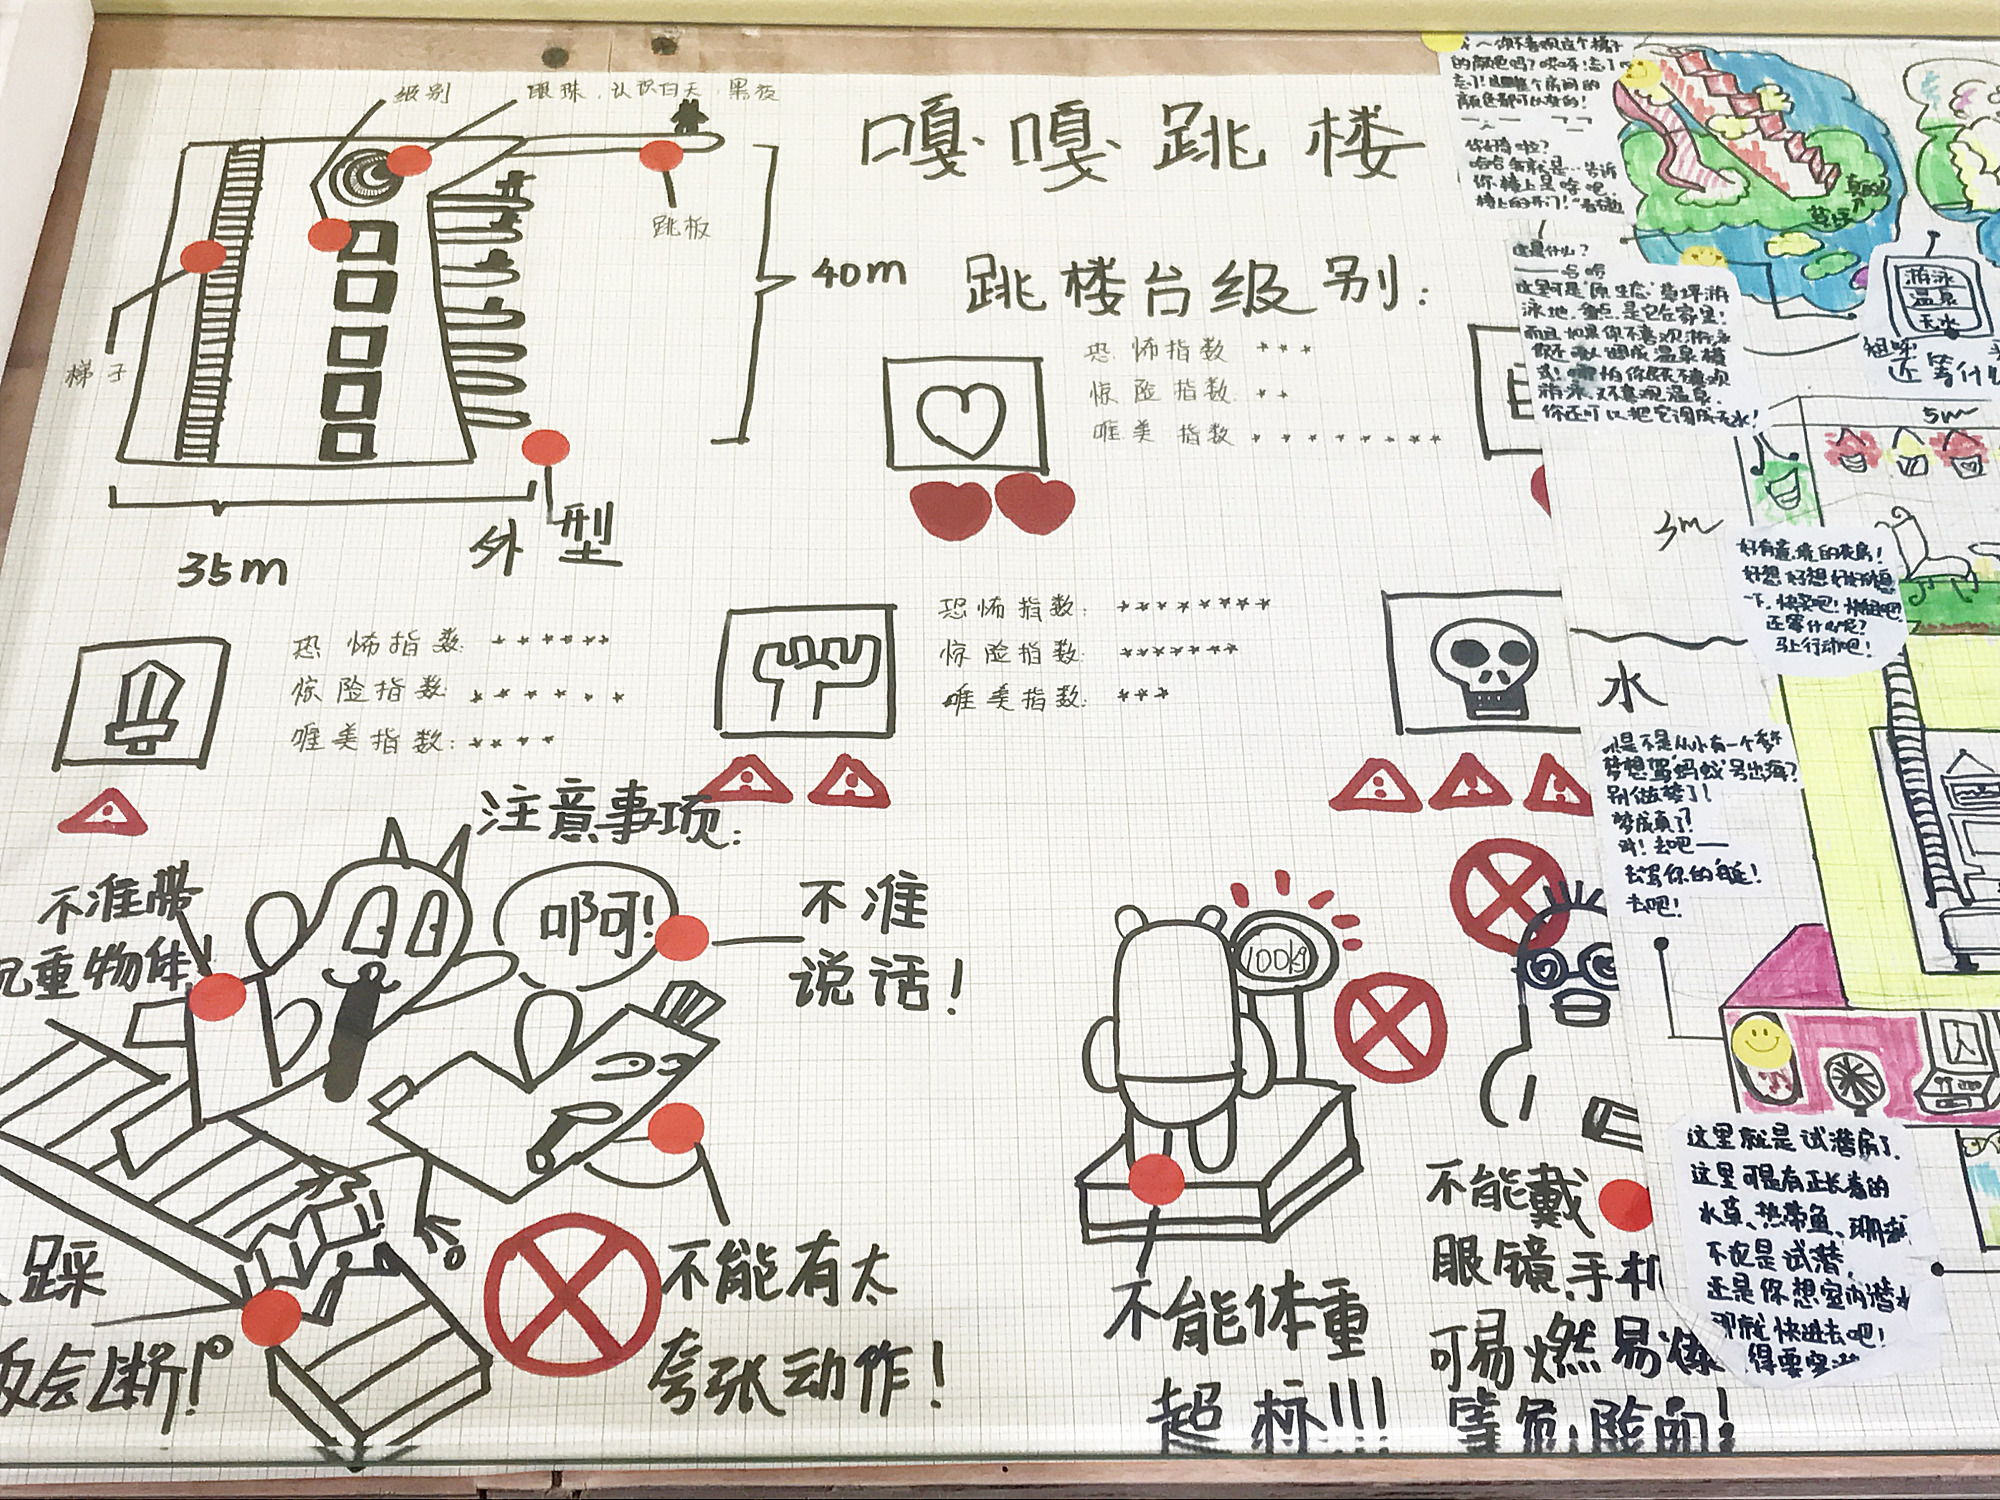 级别
眼珠.认识白天.黑夜
嘎嘎跳楼
跳板
40m
梯子
35m
外型
跳楼台级别:
恐怖指数 ***
惊险指数. **
唯美指数 ********
恐怖指数: ******
惊险指数: ******
唯美指数: ****
恐怖指数: ********
惊险指数: *******
唯美指数: ***
注意事项:
不准带
重物件!
啊!
不准
说话!
踩
会断!
不能有太
夸张动作!
100kg
不能体重
超标!!!
不能戴
眼镜.手机
可易燃易爆
等危险的!
你不喜欢这个梯子
的颜色吗?哎呀!忘了
忘了!这整个房间的
颜色都可以变的!
你好奇啦?
告诉
你.楼上是啥吧.
这是什么?
——哈哈
这里可是"原生态"草坪游
泳地.重点.是它在家里!
而且如果你不喜欢游泳
你还可以调成温泉模
式!哪怕你既不喜欢
游泳.又不喜欢温泉.
你还可以把它调成天水!
草坪
游泳
温泉
天水
还等什么
5m
3m
好有意境的花房!
好想好想好好休息
一下.快来吧!
还等什么呢?
马上行动吧!
水
是不是从小有一个梦
梦想驾"蚂蚁"号出海?
别做梦了!
梦成真了!
对!去吧——
去驾你的艇!
去吧!
这里就是试潜房了.
这里可是有正长着的
水草、热带鱼、珊瑚
不论是试潜,
还是你想室内潜水
那就快进去吧!